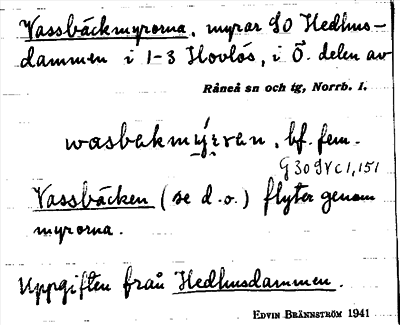 Vassbäckmyrorna, myrar SO Hedhus-
dammen i 1-3 Hovlös, i Ö. delen av
Råneå sn och tg, Norrb. l.
wasbakmýrran, bf. fem.
G 309 V c 1, 151
Vassbäcken (se d.o.) flyter genom
myrorna.
Uppgiften från Hedhusdammen.
EDVIN BRÄNNSTRÖM 1941